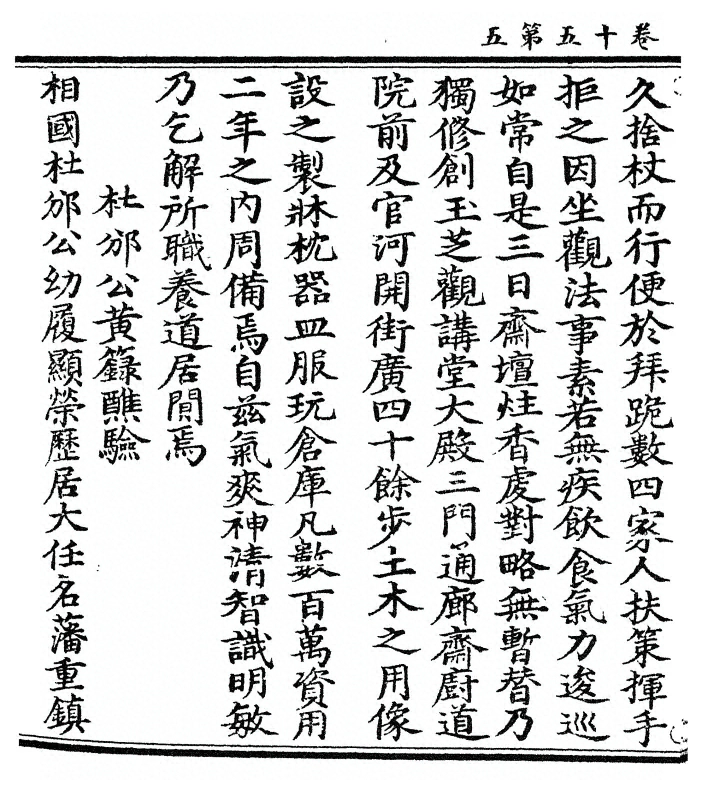 卷十五第五
久捨杖而行便於拜跪數四家人扶策揮手
拒之因坐觀法事素若無疾飲食氣力逡巡
如常自是三日齋壇炷香虔對略無暫替乃
獨修創玉芝觀講堂大殿三門通廊齋廚道
院前及官河開街廣四十餘步土木之用像
設之製牀枕器皿服玩倉庫凡數百萬資用
二年之內周備焉自茲氣爽神清智識明敏
乃乞解所職養道居閒焉
杜邠公黃籙醮驗
相國杜邠公幼履顯榮歷居大任名藩重鎮